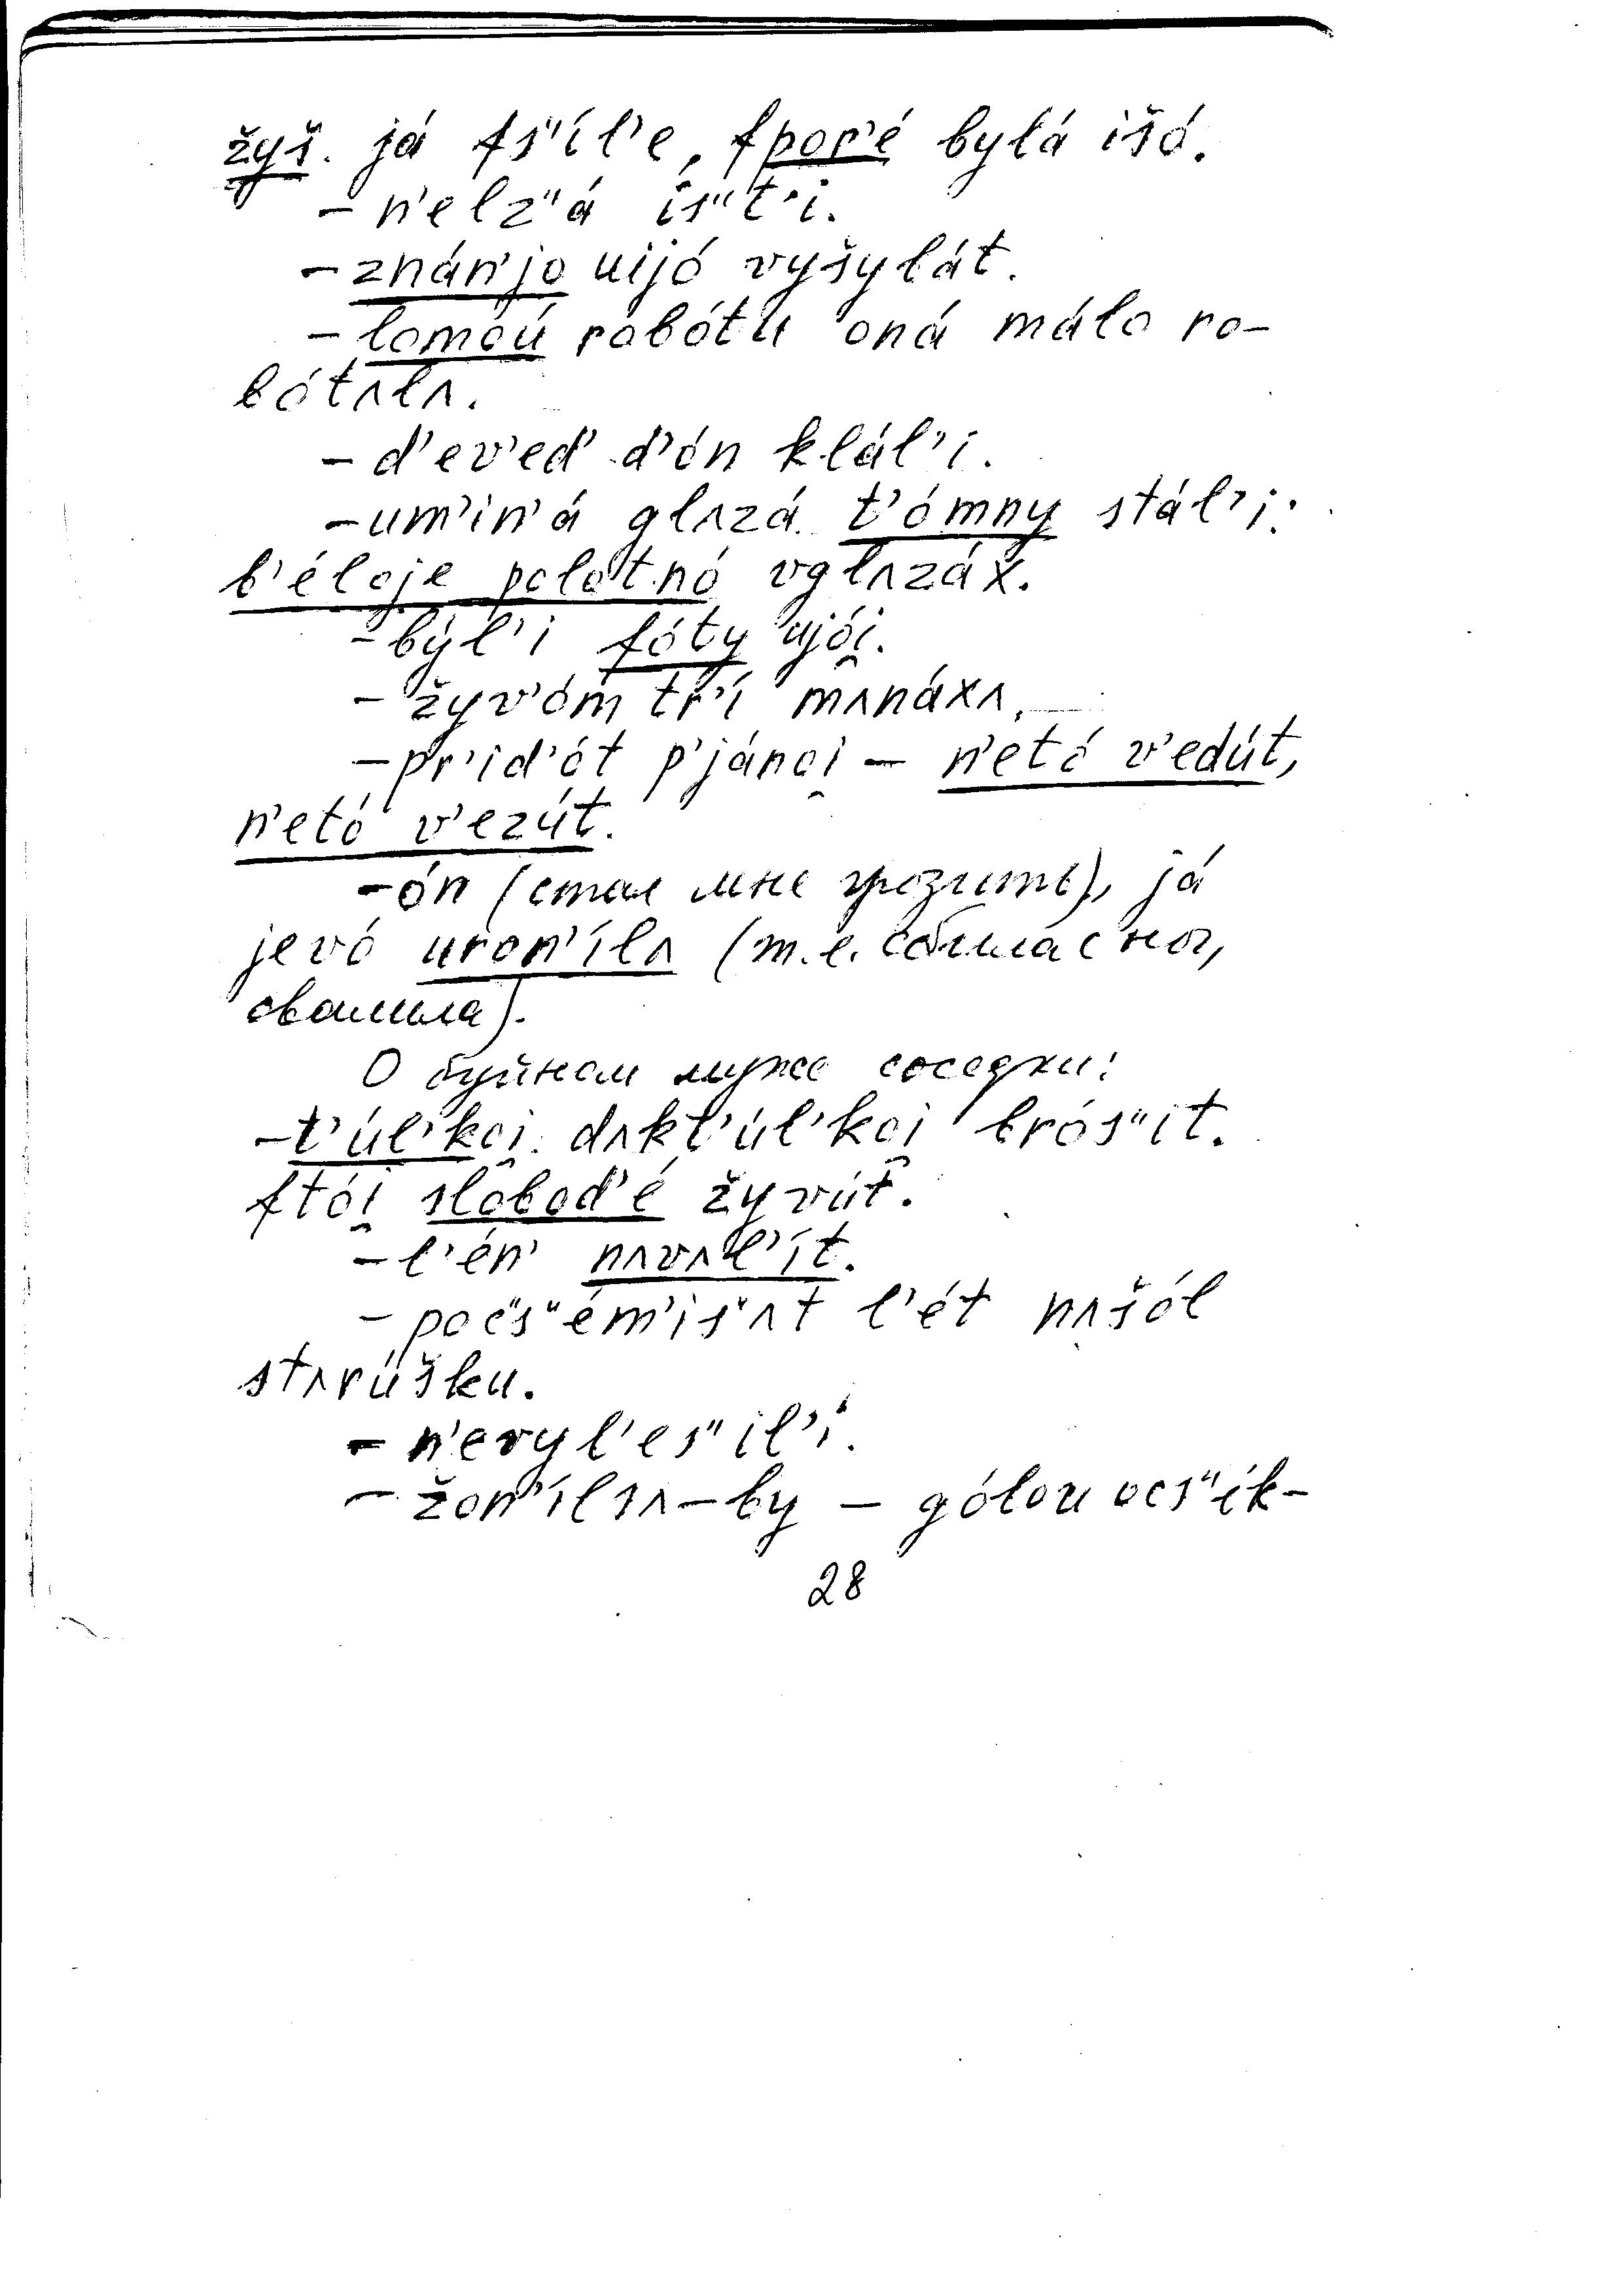 žyš. já fs"íl'e, fpor'é bylá išó.
– n'elz"á ís"t'i.
– znán'jo uijó vyšylát.
– lomoú robótu oná málo ro-
bótʌlʌ.
– d'ev'ed' d'ón klál'i.
– um'in'á glʌzá t'ómny stál'i:
b'éloje polotnó vglʌzáx.
– býl'i fóty ujói̯.
– žyv'óm tr'í mʌnáxʌ.
– pr'id'ót p'jánoi̯ – n'etó v'edút,
n'etó v'ezút.
– ón (стал мне грозить), já
jevó uron'ílʌ (т.е. сбила с ног,
свалила).
О буйном муже соседки:
– t'úl'koi̯. dʌkt'úl'koi̯ brós"it.
ftói̯ slobod'é žyvút.
– l'én' nʌvʌl'ít.
– pocs"ém'is"ʌt l'ét nʌšól
stʌrúšku.
– n'evyl'es"il'i.
– žon'ílsʌ–by – gólou ocs"ék-
28